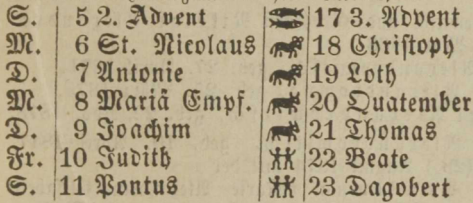 S. 5 2. Advent 17 3. Advent
M. 6 St. Nicolaus 18 Christoph
D. 7 Antonie 19 Loth
M. 8 Mariä Empf. 20 Quatember
D. 9 Joachim 21 Thomas
Fr. 10 Judith 22 Beate
S. 11 Pontus 23 Dagobert